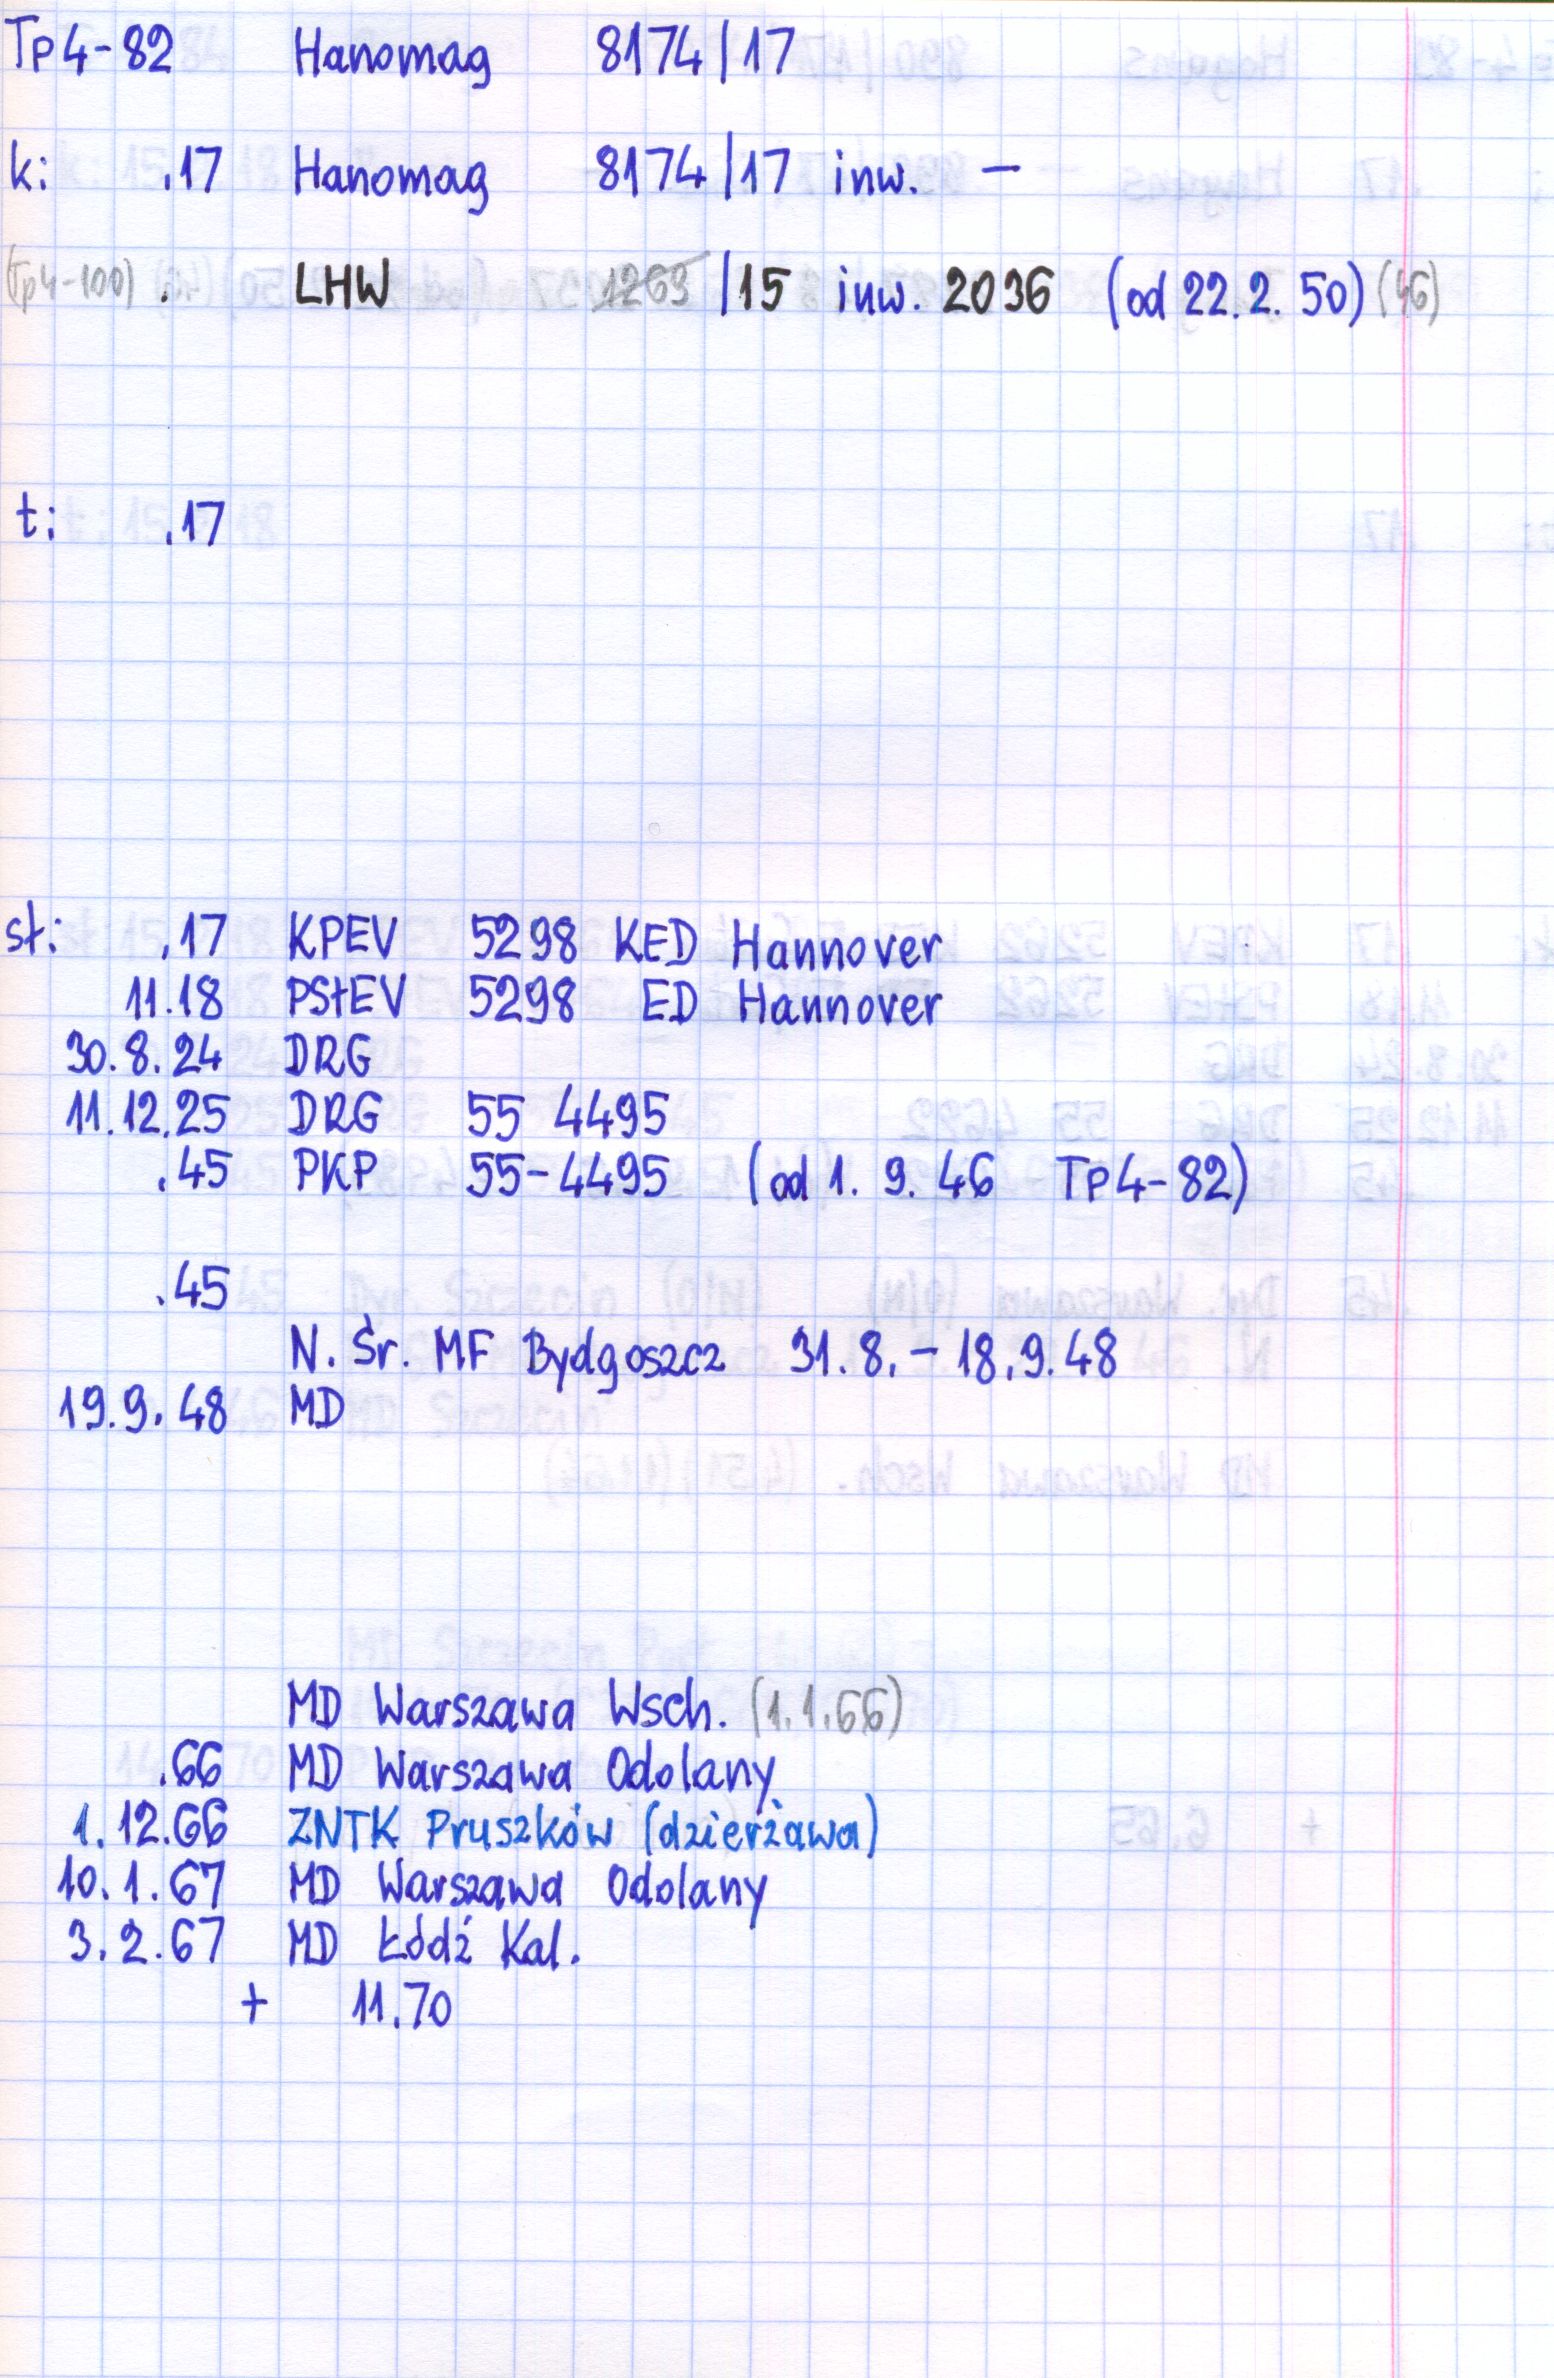 Tp4-82 Hanomag 8174/17
k: .17 Hanomag 8174/17 inw. -
(Tp4-100) . LHW 1269/15 inw. 2036 (od 22.2.50) (46)
t: .17
st: .17 KPEV 5298 KED Hannover
11.18 PStEV 5298 ED Hannover
30.8.24 DRG
11.12.25 DRG 55 4495
.45 PKP 55-4495 (od 1.9.46 Tp4-82)
.45
N. Śr. MF Bydgoszcz 31.8.-18.9.48
19.9.48 MD
MD Warszawa Wsch. (1.1.66)
.66 MD Warszawa Odolany
1.12.66 ZNTK Pruszków (dzierżawa)
10.1.67 MD Warszawa Odolany
3.2.67 MD Łódź Kal.
+ 11.70